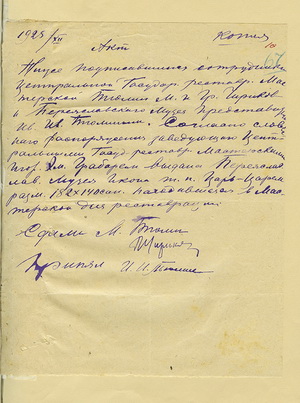 1925/XII
Копия
Акт
Ниже подписавшиеся сотрудники
Центральной Государ реставр. Мас-
терской Тюлин М. и Гр. Чириков
и Переславского Музея Представит.
Ив. Ив. Согласно словес-
ного распоряжения заведующего Цент-
ральными Госуд реставр Мастерскими
Игор. Эм. Грабарем выдана Переслав-
лав. Музея Икона т. н. Царь-Царем
разм. 182×140 сан. находившаяся в Мас-
терской для реставрации
Сдали М. Тюлин
Чириков
Принял И. И.